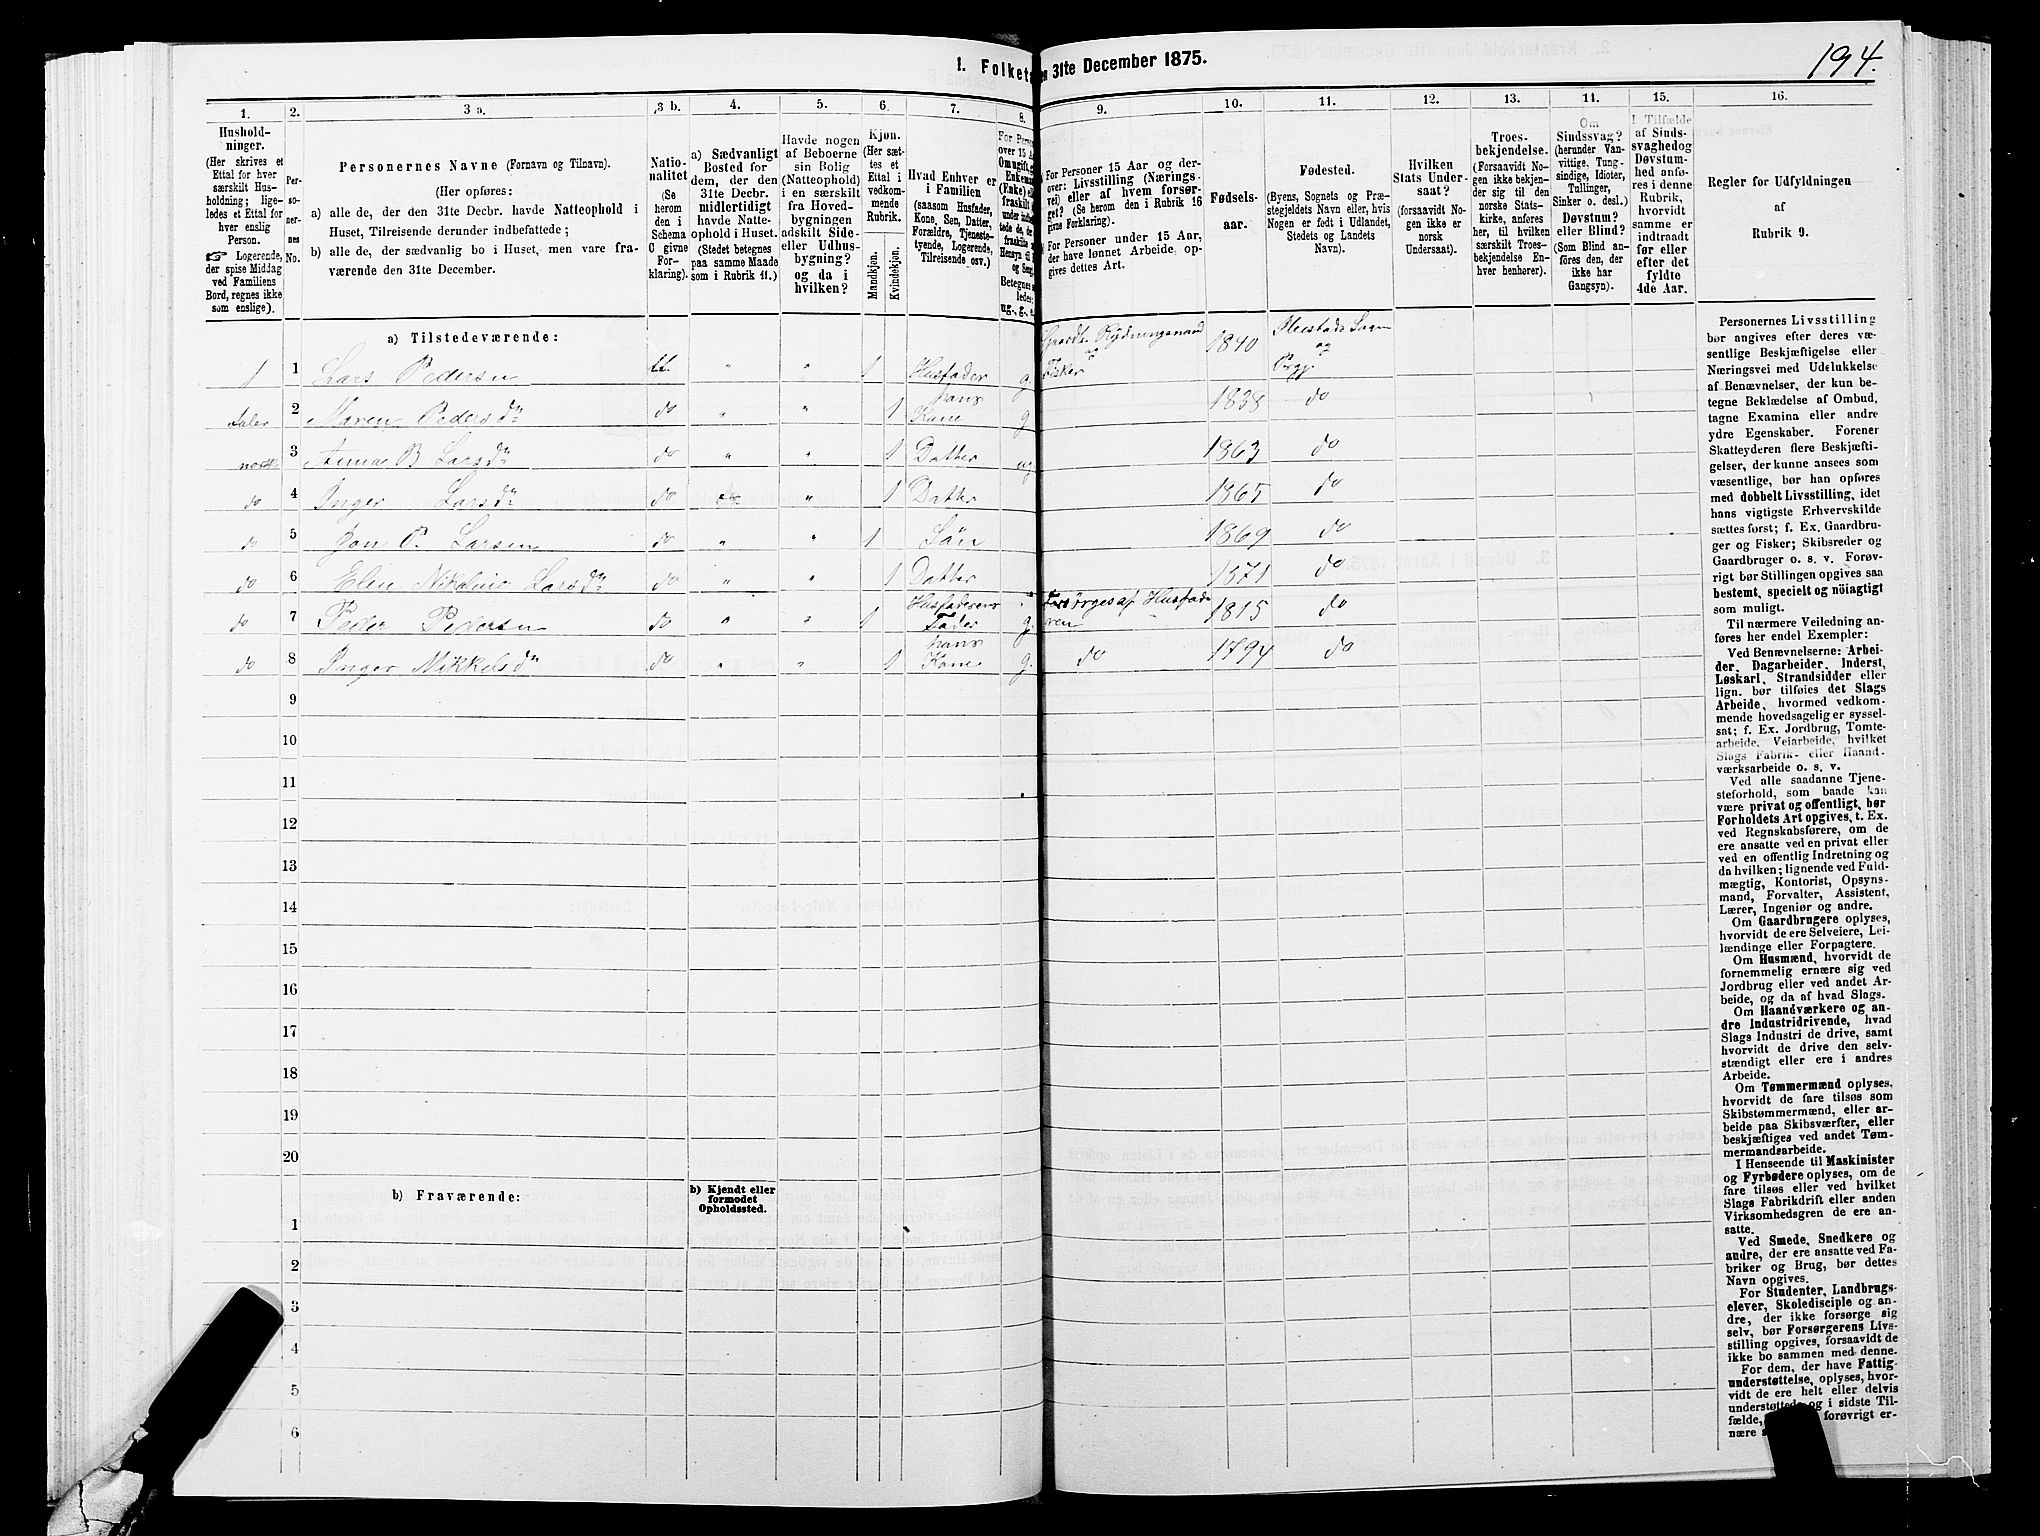 1. Folket
en 31te December 1875.
194.
1.
Hushold-
ninger.
(Her skrives et
Ettal for hver
særskilt Hus-
holdning; lige-
ledes et Ettal for
hver enslig
Person.
☞ Logerende,
der spise Middag
ved Familiens
Bord, regnes ikke
som enslige).
2.
Per-
so-
ner-
nes
No.
3 a.
Personernes Navne (Fornavn og Tilnavn).
(Her opføres:
a) alle de, der den 31te Decbr. havde Natteophold i
Huset, Tilreisende derunder indbefattede;
b) alle de, der sædvanlig bo i Huset, men vare fra-
værende den 31te December.
3 b.
Natio-
nalitet
(Se
herom
den i
Schema
C givne
For-
klaring).
4.
a) Sædvanligt
Bosted for
dem, der den
31te Decbr.
midlertidigt
havde Natte-
ophold i Huset.
(Stedet betegnes
paa samme Maade
som i Rubrik 11.)
5.
Havde nogen
af Beboerne
sin Bolig
(Natteophold)
i en særskilt
fra Hoved-
bygningen
adskilt Side-
eller Udhus-
bygning?
og da i
hvilken?
6.
Kjøn.
(Her sæt-
tes et
Ettal i
vedkom-
mende
Rubrik.
Mandkjøn.
Kvindekjøn.
7.
Hvad Enhver er
i Familien
(saasom Husfader,
Kone, Søn, Datter,
Forældre, Tjeneste-
tyende, Logerende,
Tilreisende osv.)
8.
For Perso
over 15 Aa
Omugift, g
Enkema
(Enke) ell
fraskilt
ug., g., e.
9.
For Personer 15 Aar og der-
over: Livsstilling (Nærings-
vei) eller af hvem forsør-
get? (Se herom den i Rubrik 16
givne Forklaring).
For Personer under 15 Aar,
der have lønnet Arbeide, op-
gives dettes Art.
10.
Fødsels-
aar.
11.
Fødested.
(Byens, Sognets og Præ-
stegjeldets Navn eller, hvis
Nogen er født i Udlandet,
Stedets og Landets
Navn).
12.
Hvilken
Stats Under-
saat?
(forsaavidt No-
gen ikke er
norsk
Undersaat).
13.
Troes-
bekjendelse.
(Forsaavidt No-
gen ikke bekjen-
der sig til den
norske Stats-
kirke, anføres
her, til hvilken
særskilt Troes-
bekjendelse En-
hver henhører).
14.
Om
Sindssvag?
(herunder Van-
vittige, Tung-
sindige, Idioter,
Tullinger,
Sinker o. desl.)
Døvstum?
eller Blind?
(Som Blind an-
føres den, der
ikke har
Gangsyn).
15.
I Tilfælde
af Sinds-
svaghed og
Døvstum-
hed anfø-
res i denne
Rubrik,
hvorvidt
samme er
indtraadt
før eller
efter det
fyldte
4de Aar.
16.
Regler for Udfyldningen
af
Rubrik 9.
a) Tilstedeværende:
1 1 Lars Pedersn 1 Husfader g. Fisker 1840
2 Maren Pedersdn do 1 hans Kone g 1838 do
norsk 3 Anna B Larsdn do 1 Datter ug 1863 do
do 4 Inger Larsdn do 1 Datter 1865 do
do 5 Jon P. Larsen do 1 Sön 1869 do
do 6 Elen Nikoline Larsdn do 1 Datter 1871 do
do 7 Peder Pedersn do 1 Husfaderens Fader g. Forsörges af Husfaderen 1815 do
do 8 Inger Mikkelsdn do 1 hans Kone g. do 1794 do
9
10
11
12
13
14
15
16
17
18
19
20
b) Fraværende:
b) Kjendt eller
formodet
Opholdssted.
1
2
3
4
5
6
Personernes Livsstilling
bør angives efter deres væ-
sentlige Beskjæftigelse eller
Næringsvei med Udelukkelse
af Benævnelser, der kun be-
tegne Beklædelse af Ombud,
tagne Examina eller andre
ydre Egenskaber. Forener
Skatteyderen flere Beskjæfti-
gelser, der kunne ansees som
væsentlige, bør han opføres
med dobbelt Livsstilling, idet
hans vigtigste Erhvervskilde
sættes først; f. Ex. Gaardbru-
ger og Fisker; Skibsreder og
Gaardbruger o. s. v. Forøv-
rigt bør Stillingen opgives saa
bestemt, specielt og nöiagtigt
som muligt.
Til nærmere Veiledning an-
føres her endel Exempler:
Ved Benævnelserne: Arbei-
der, Dagarbeider, Inderst,
Løskarl, Strandsidder eller
lign. bør tilføies det Slags
Arbeide, hvormed vedkom-
mende hovedsagelig er syssel-
sat; f. Ex. Jordbrug, Tomte-
arbeide, Veiarbeide, hvilket
Slags Fabrik- eller Haand-
værksarbeide o. s. v.
Ved alle saadanne Tjene-
steforhold, som baade kan
være privat og offentligt, bør
Forholdets Art opgives, t. Ex.
ved Regnskabsførere, om de
ere ansatte ved en privat eller
ved en offentlig Indretning og
da hvilken; lignende ved Fuld-
mægtig, Kontorist, Opsyns-
mand, Forvalter, Assistent,
Lærer, Ingeniør og andre.
Om Gaardbrugere oplyses,
hvorvidt de ere Selveiere, Lei-
lændinge eller Forpagtere.
Om Husmænd, hvorvidt de
fornemmelig ernære sig ved
Jordbrug eller ved andet Ar-
beide, og da af hvad Slags.
Om Haandværkere og an-
dre Industridrivende, hvad
Slags Industri de drive, samt
hvorvidt de drive den selv-
stændigt eller ere i andres
Arbeide.
Om Tømmermænd oplyses,
hvorvidt de fare tilsøs som
Skibstømmermænd, eller ar-
beide paa Skibsværfter, eller
beskjæftiges ved andet Tøm-
mermandsarbeide.
I Henseende til Maskinister
og Fyrbødere oplyses, om de
fare tilsøs eller ved hvilket
Slags Fabrikdrift eller anden
Virksomhedsgren de ere an-
satte.
Ved Smede, Snedkere og
andre, der ere ansatte ved Fa-
briker og Brug, bør dettes
Navn opgives.
For Studenter, Landbrugs-
elever, Skoledisciple og an-
dre, der ikke forsørge sig
selv, bør Forsørgerens Livs-
stilling opgives, forsaavidt de
ikke bo sammen med denne.
For dem, der have Fattig-
understøttelse, oplyses, hvor-
vidt de ere helt eller delvis
understøttede og i sidste Til-
fælde, forøvrigt er-
nære